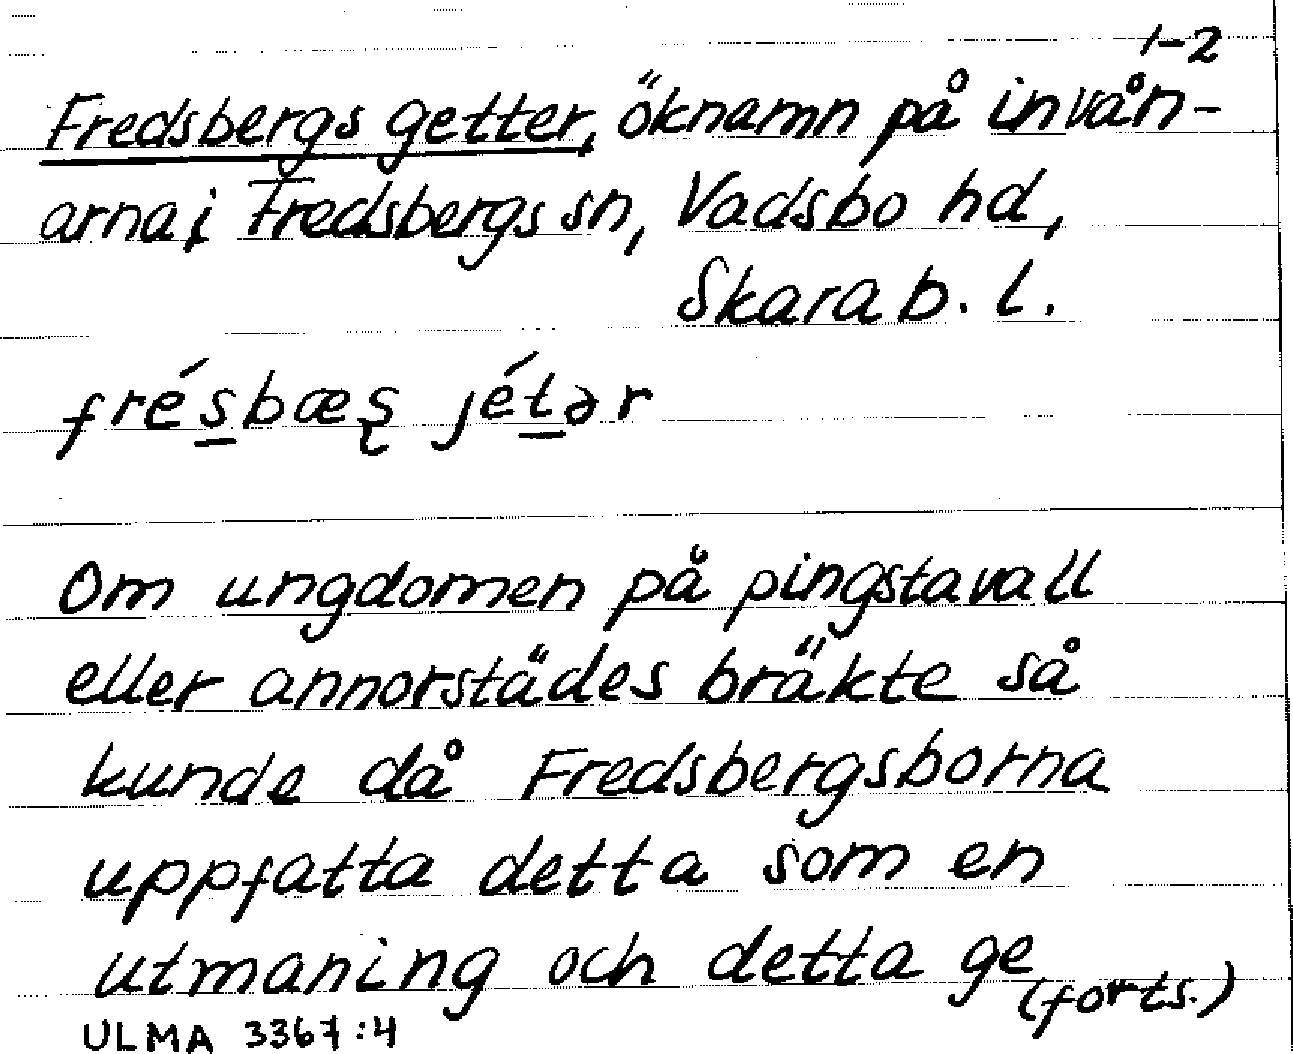 1-2
Fredsbergs getter, öknamn på invån-
arna i Fredsbergs sn, Vadsbo hd,
Skarab. l.
frésbæʂ jétər
Om ungdomen på pingstavall
eller annorstädes bräkte så
kunde då Fredsbergsborna
uppfatta detta som en
utmaning och detta ge
(forts.)
ULMA 3367:4